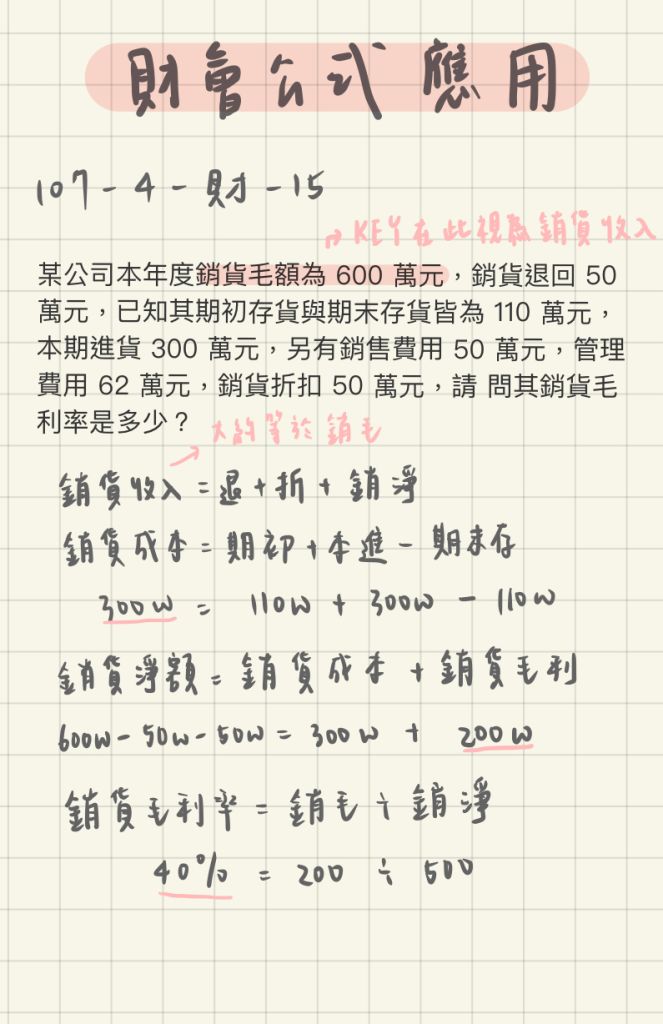 財會公式應用
107-4-財-15
→ KEY在此視為銷貨收入
某公司本年度銷貨毛額為 600 萬元，銷貨退回 50
萬元，已知其期初存貨與期末存貨皆為 110 萬元，
本期進貨 300 萬元，另有銷售費用 50 萬元，管理
費用 62 萬元，銷貨折扣 50 萬元，請 問其銷貨毛
利率是多少？
大約等於銷毛
銷貨收入=退+折+銷淨
銷貨成本=期初+本進-期末存
300w = 110w + 300w - 110w
銷貨淨額=銷貨成本+銷貨毛利
600w-50w-50w=300w + 200w
銷貨毛利率=銷毛÷銷淨
40% = 200 ÷ 500